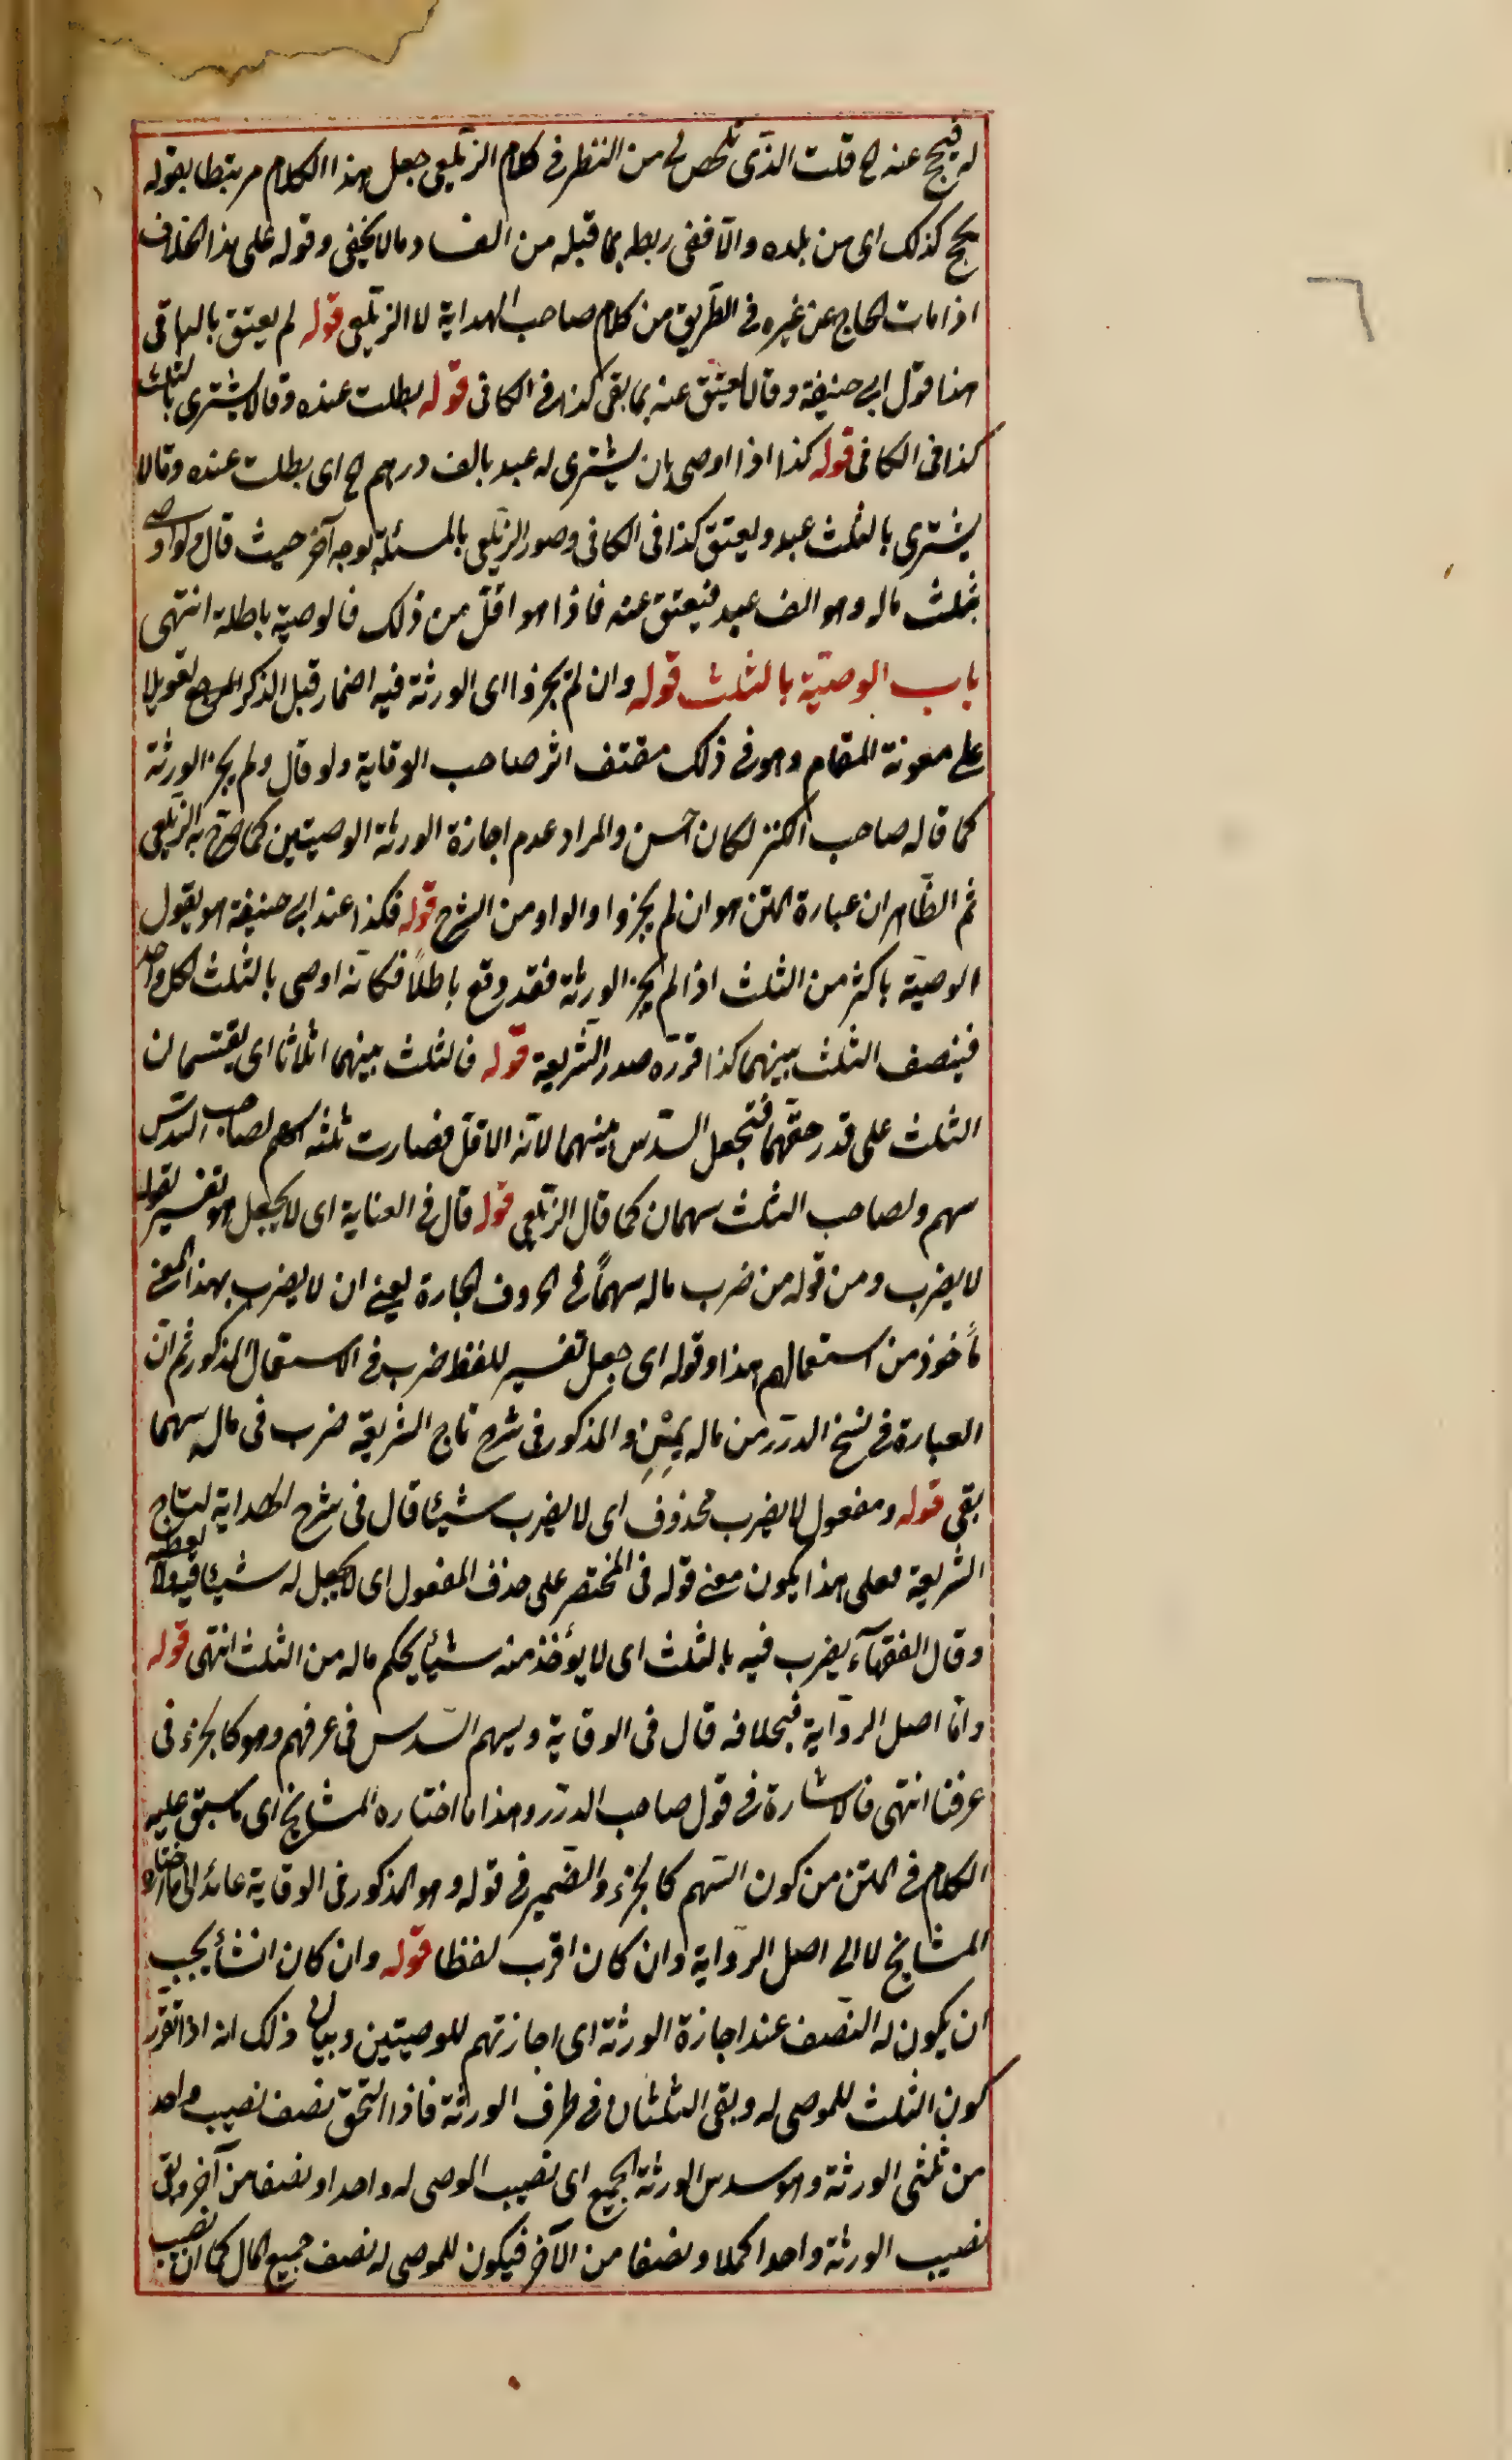 له فيحج عنه ح قلت الذى تلخص لى من النظر فى كلام الزيلعى جعل هذا الكلام مرتبطا بقوله
يحج كذلك اى من بلده والا ففى ربطه بما قبله من الفساد مالا يخفى وقوله على هذا الخلاف
اذا مات الحاج عن غيره فى الطريق من كلام صاحب الهداية لا الزيلعى قوله لم يعتق بالباقى
هذا قول ابى حنيفة وقالا يعتق عنه بما بقى كذا فى الكافى قوله بطلت عنده وقالا يشترى بالثلث
كذا فى الكافى قوله كذا اذا اوصى بان يشترى له عبد بالف درهم ح اى بطلت عنده وقالا
يشترى بالثلث عبد ويعتق كذا فى الكافى وصور الزيلعى بالمسئلة لوجه آخر حيث قال ولو اوصى
بثلث ماله وهو الف عبد فيعتق عنه فاذا هو اقل من ذلك فالوصية باطلة انتهى
باب الوصية بالثلث قوله وان لم يجزوا اى الورثة فيه اضمار قبل الذكر المرجع تعويلا
على معونة المقام وهو فى ذلك مقتف اثر صاحب الوقاية ولو قال ولم يجز الورثة
كما قاله صاحب الكنز لكان احسن والمراد عدم اجازة الورثة الوصيتين كما صرح به الزيلعى
ثم الظاهر ان عبارة المتن هو ان لم يجزوا والواو من الشرح قوله فكذا عند ابى حنيفة هو يقول
الوصية باكثر من الثلث اذا لم يجز الورثة فقد وقع باطلا فكانه اوصى بالثلث لكل واحد
فينصف الثلث بينهما كذا قرره صدر الشريعة قوله فالثلث بينهما اثلاثا اى يقتسمان
الثلث على قدر حقهما فتجعل السدس بينهما لانه الاقل فصارت ثلثة اسهم لصاحب السدس
سهم ولصاحب الثلث سهمان كما قال الزيلعى قوله قال فى العناية اى لا يجعل هو تفسير لقوله
لا يضرب ومن قوله من ضرب ماله سهما فى الحروف الجارة يعنى ان لا يضرب بهذا المعنى
مأخوذ من استعمالهم هذا وقوله اى جعل تفسير للفظ ضرب فى الاستعمال المذكور ثم ان
العبارة فى نسخ الدرر من ماله بمِنْ والمذكور فى شرح تاج الشريعة ضرب فى ماله سهما
بقى قوله ومفعول لا يضرب محذوف اى لا يضرب شيئا قال فى شرح الهداية لتاج
الشريعة فعلى هذا يكون معنى قوله فى المختصر على حذف المفعول اى لا يجعل له شيئا فيه ولا يعطيه
وقال الفقهاء يضرب فيه بالثلث اى لا يؤخذ منه شيئا بحكم ماله من الثلث انتهى قوله
واما اصل الرواية فبخلافه قال فى الوقاية وبسهم السدس فى عرفهم وهو كالجزء فى
عرفنا انتهى فالاشارة فى قول صاحب الدرر وهذا ما اختاره المشايخ اى ما سبق عليه
الكلام فى المتن من كون السهم كالجزء والضمير فى قوله وهو المذكور فى الوقاية عائد الى ما اختاره
المشايخ لا الى اصل الرواية وان كان اقرب لفظا قوله وان كان انشأ يجب
ان يكون له النصف عند اجازة الورثة اى اجازتهم للوصيتين وبيان ذلك انه اذا تقرر
كون الثلث للموصى له وبقى الثلثان فى طرف الورثة فاذا التحق نصف نصيب واحد
من ثلثى الورثة وهو سدس الورثة الجميع اى نصيب الموصى له واحدا ونصفا من آخر وبقى
نصيب الورثة واحدا كملا ونصفا من الآخر فيكون للموصى له نصف جميع المال كما ان نصيب